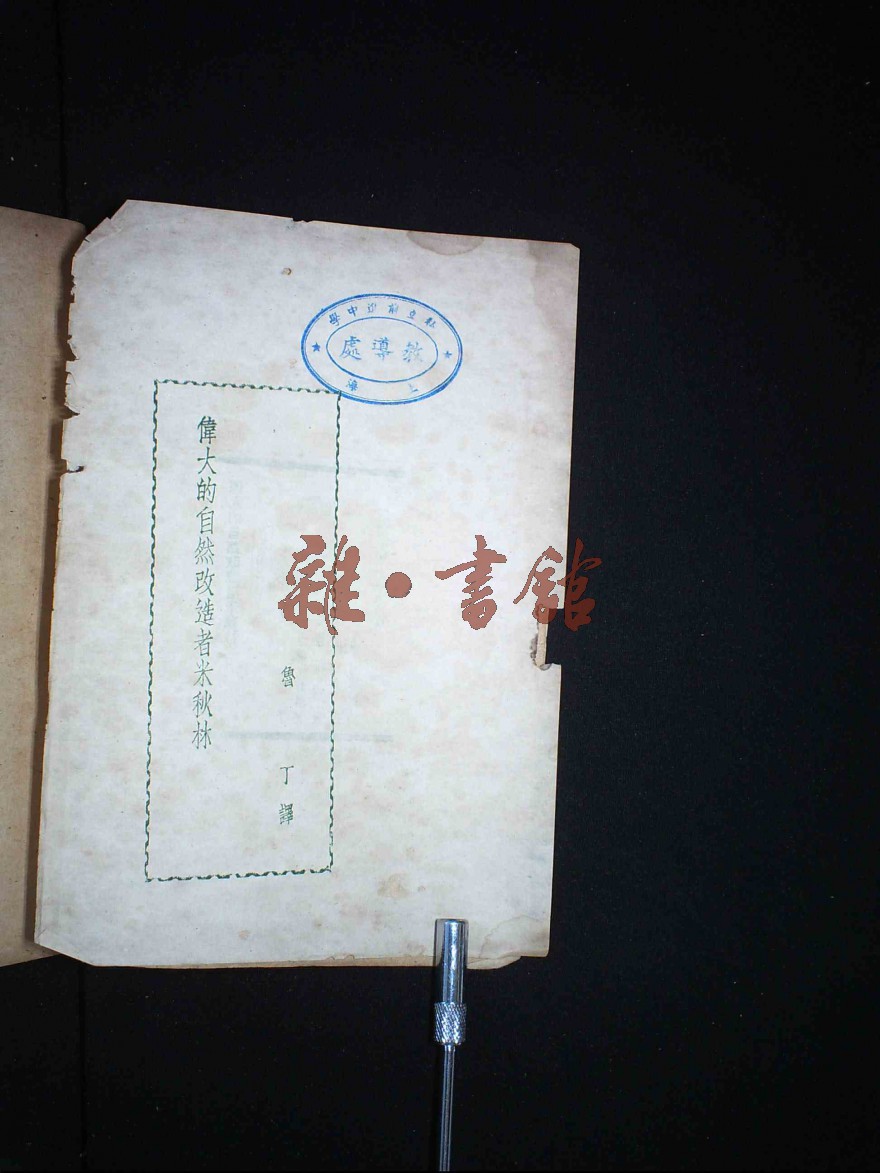 私立前進中學
教導處
偉大的自然改造者米秋林
魯丁譯
雜·書館